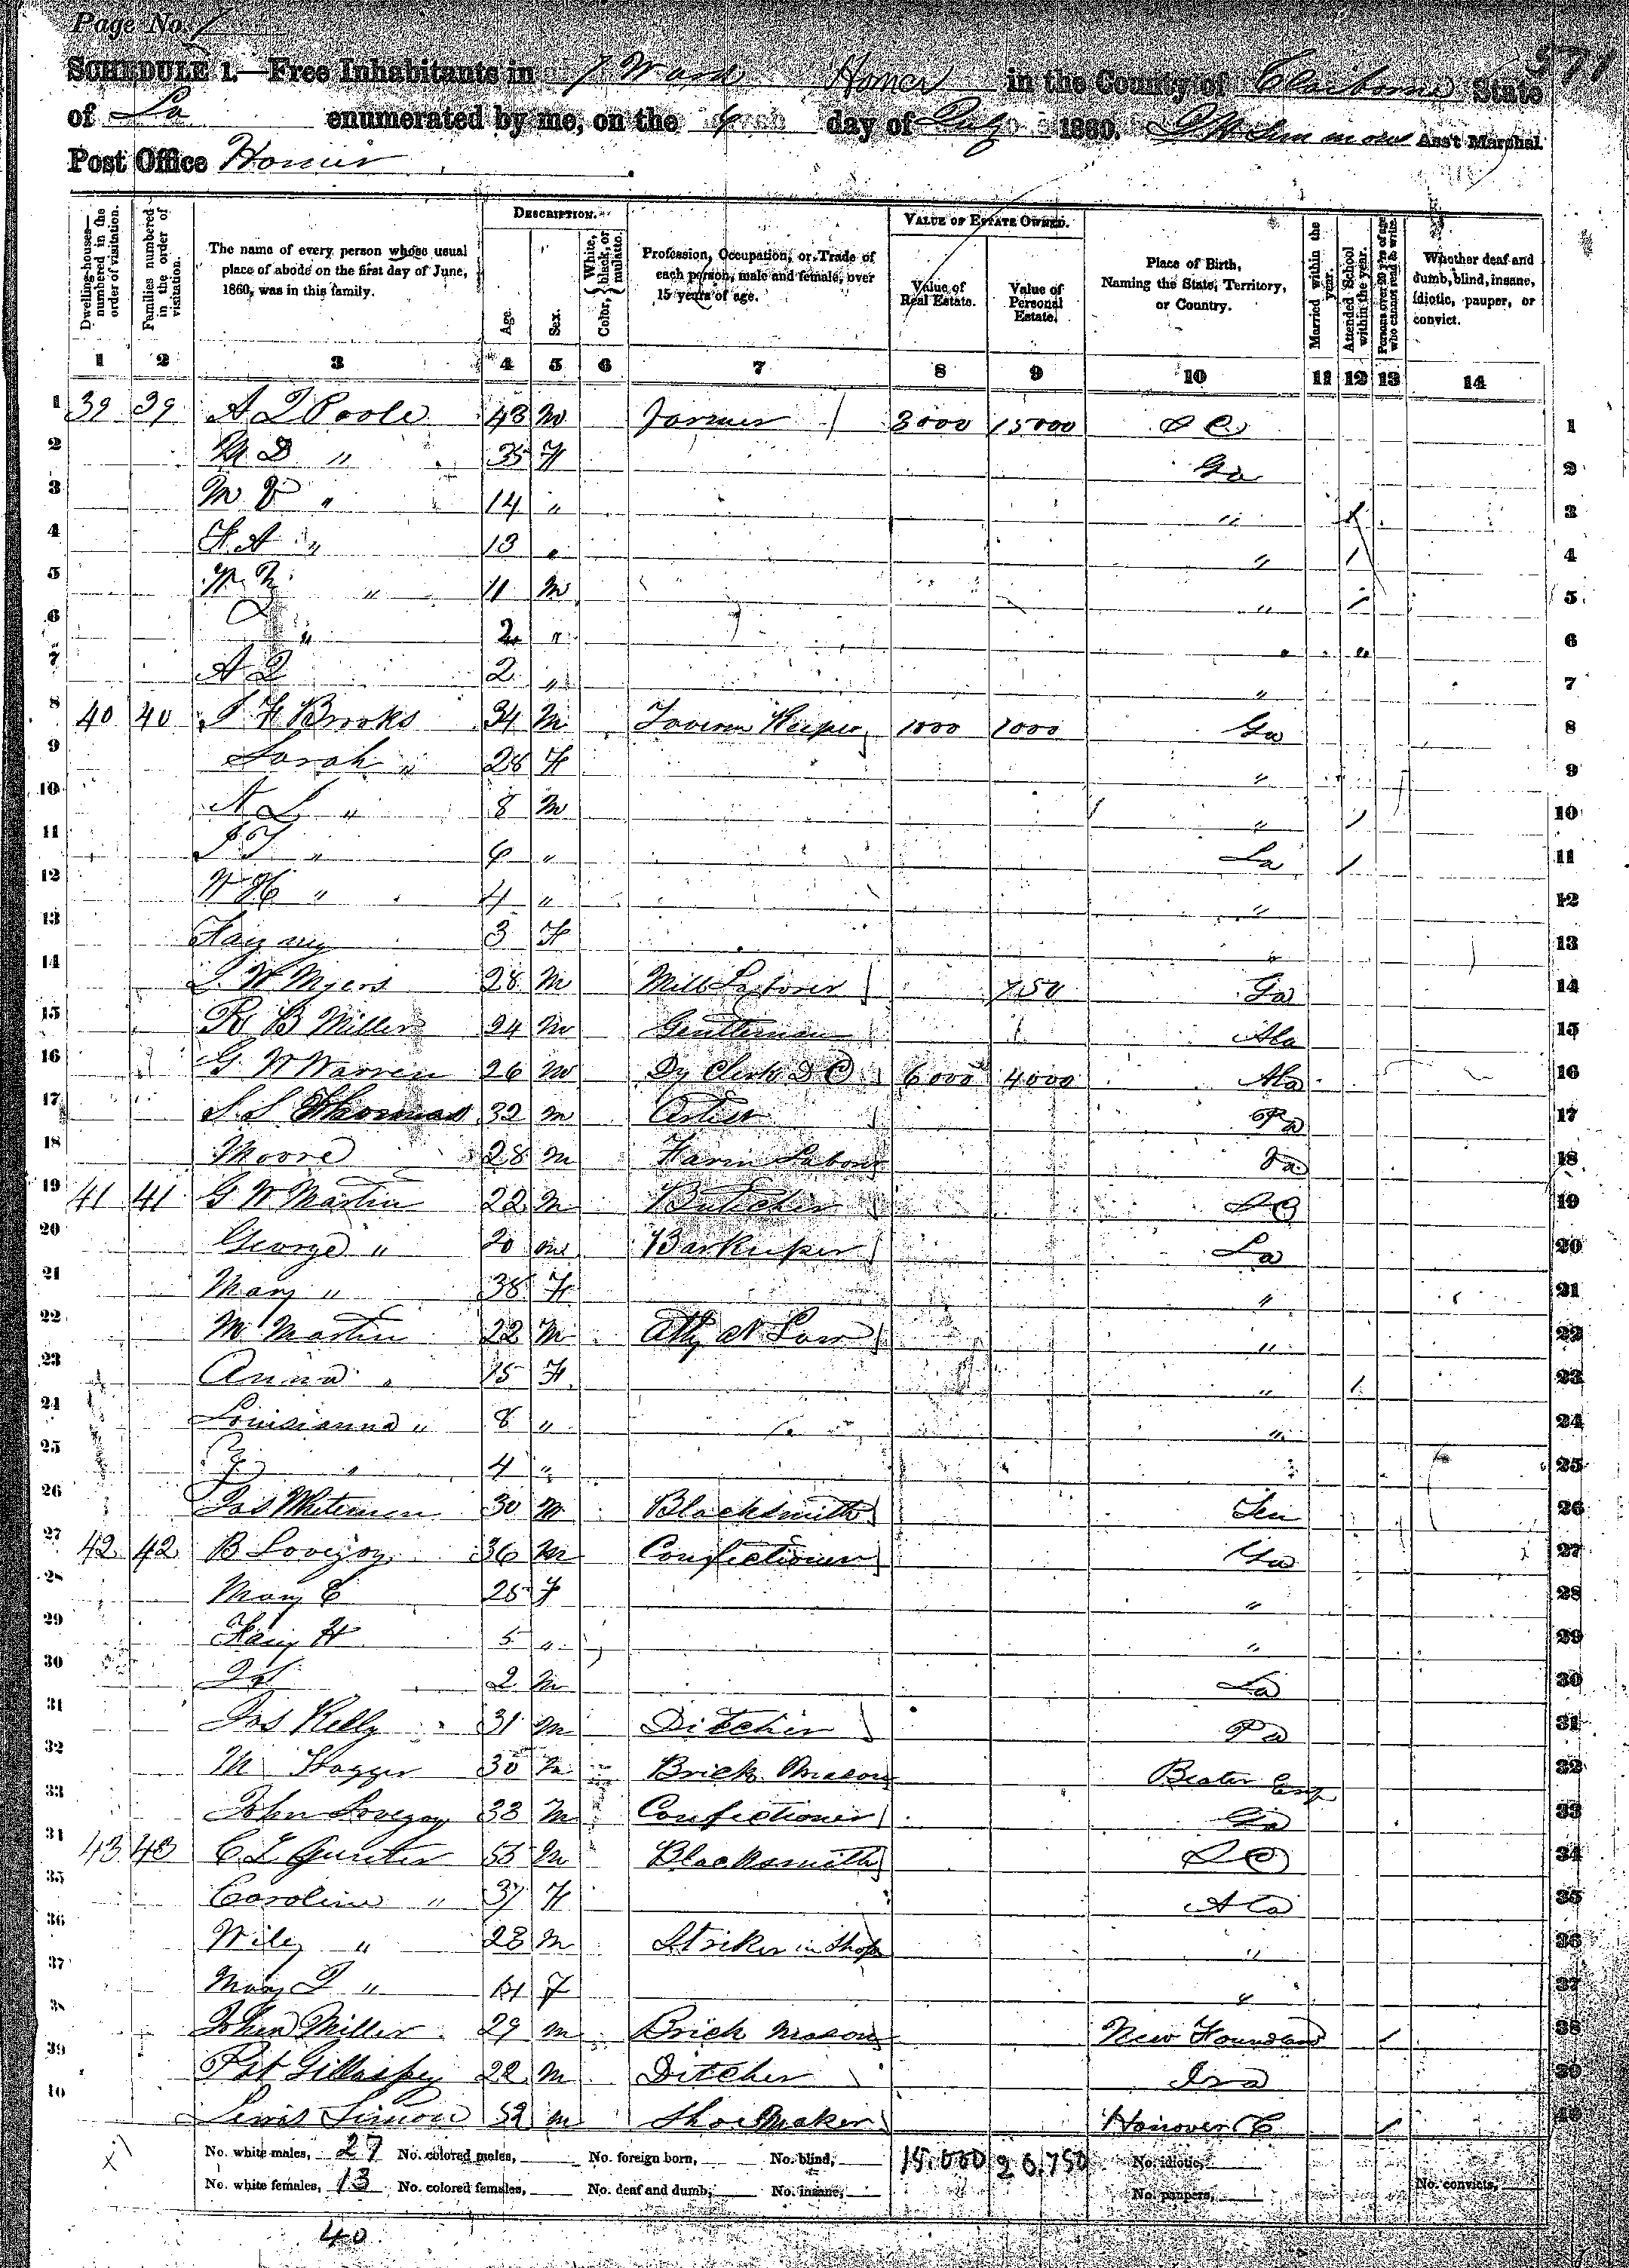 Page No. 7
371
SCHEDULE 1.—Free Inhabitants in 7 Ward Homer in the County of Claiborne State
of La enumerated by me, on the day of July 1860. Ass't Marshal.
Post Office Homer
Dwelling-houses—numbered in the order of visitation.
Families numbered in the order of visitation.
The name of every person whose usual place of abode on the first day of June, 1860, was in this family.
DESCRIPTION.
Age.
Sex.
Color, White, black, or mulatto.
Profession, Occupation, or Trade of each person, male and female, over 15 years of age.
VALUE OF ESTATE OWNED.
Value of Real Estate.
Value of Personal Estate.
Place of Birth, Naming the State, Territory, or Country.
Married within the year.
Attended School within the year.
Persons over 20 y'rs of age who cannot read & write.
Whether deaf and dumb, blind, insane, idiotic, pauper, or convict.
1 2 3 4 5 6 7 8 9 10 11 12 13 14
1 39 39 Poole 43 M Farmer 8000 15000 1
2 M D " 35 F Ga 2
3 M " 14 " " 3
4 " 13 " " / 4
5 " 11 M " / 5
6 " 2 " " 6
7 A 2 " " 7
8 40 40 Brooks 34 M Tavern Keeper 1000 1000 Ga 8
9 Sarah " 28 F " 9
10 " 8 M " / 10
11 " 6 " La / 11
12 " 4 " " 12
13 3 F " 13
14 W Myers 28 M Mill Laborer 750 Ga 14
15 R B Miller 24 M Gentleman Ala 15
16 G W Warren 26 M Dy Clerk D C 6000 4000 Ala 16
17 S S Thomas 32 M Artist Pa 17
18 Moore 28 M Farm Labour 18
19 41 41 G W Martin 22 M Butcher S C 19
20 George " 20 M Barkeeper La 20
21 Mary " 38 F " 21
22 M Martin 22 M Atty at Law " 22
23 Anna " 15 F " / 23
24 Louisianna " 8 " " 24
25 " 4 " " 25
26 Jas Whiteman 30 M Blacksmith Ten 26
27 42 42 B Lovejoy 36 M Confectioner Ga 27
28 Mary E 25 F " 28
29 H 5 " " 29
30 2 M La 30
31 Jas Kelly 31 M Ditcher Pa 31
32 M 30 M Brick Mason Eng 32
33 John Lovejoy 33 M Confectioner Ga 33
34 43 43 C Gunter 55 M Blacksmith S C 34
35 Caroline " 37 F Ala 35
36 Wiley " 23 M Striker in Shop " 36
37 Mary " 14 F " 37
38 John Miller 29 M Brick Mason New Foundland / 38
39 Pat Gillaspey 22 M Ditcher 39
40 Lewis Simon 52 M Shoe Maker Hanover / 40
No. white males, 27 No. colored males, No. foreign born, No. blind, 15.000 20,750 No. idiotic,
No. white females, 13 No. colored females, No. deaf and dumb, No. insane, No. paupers, No. convicts,
40